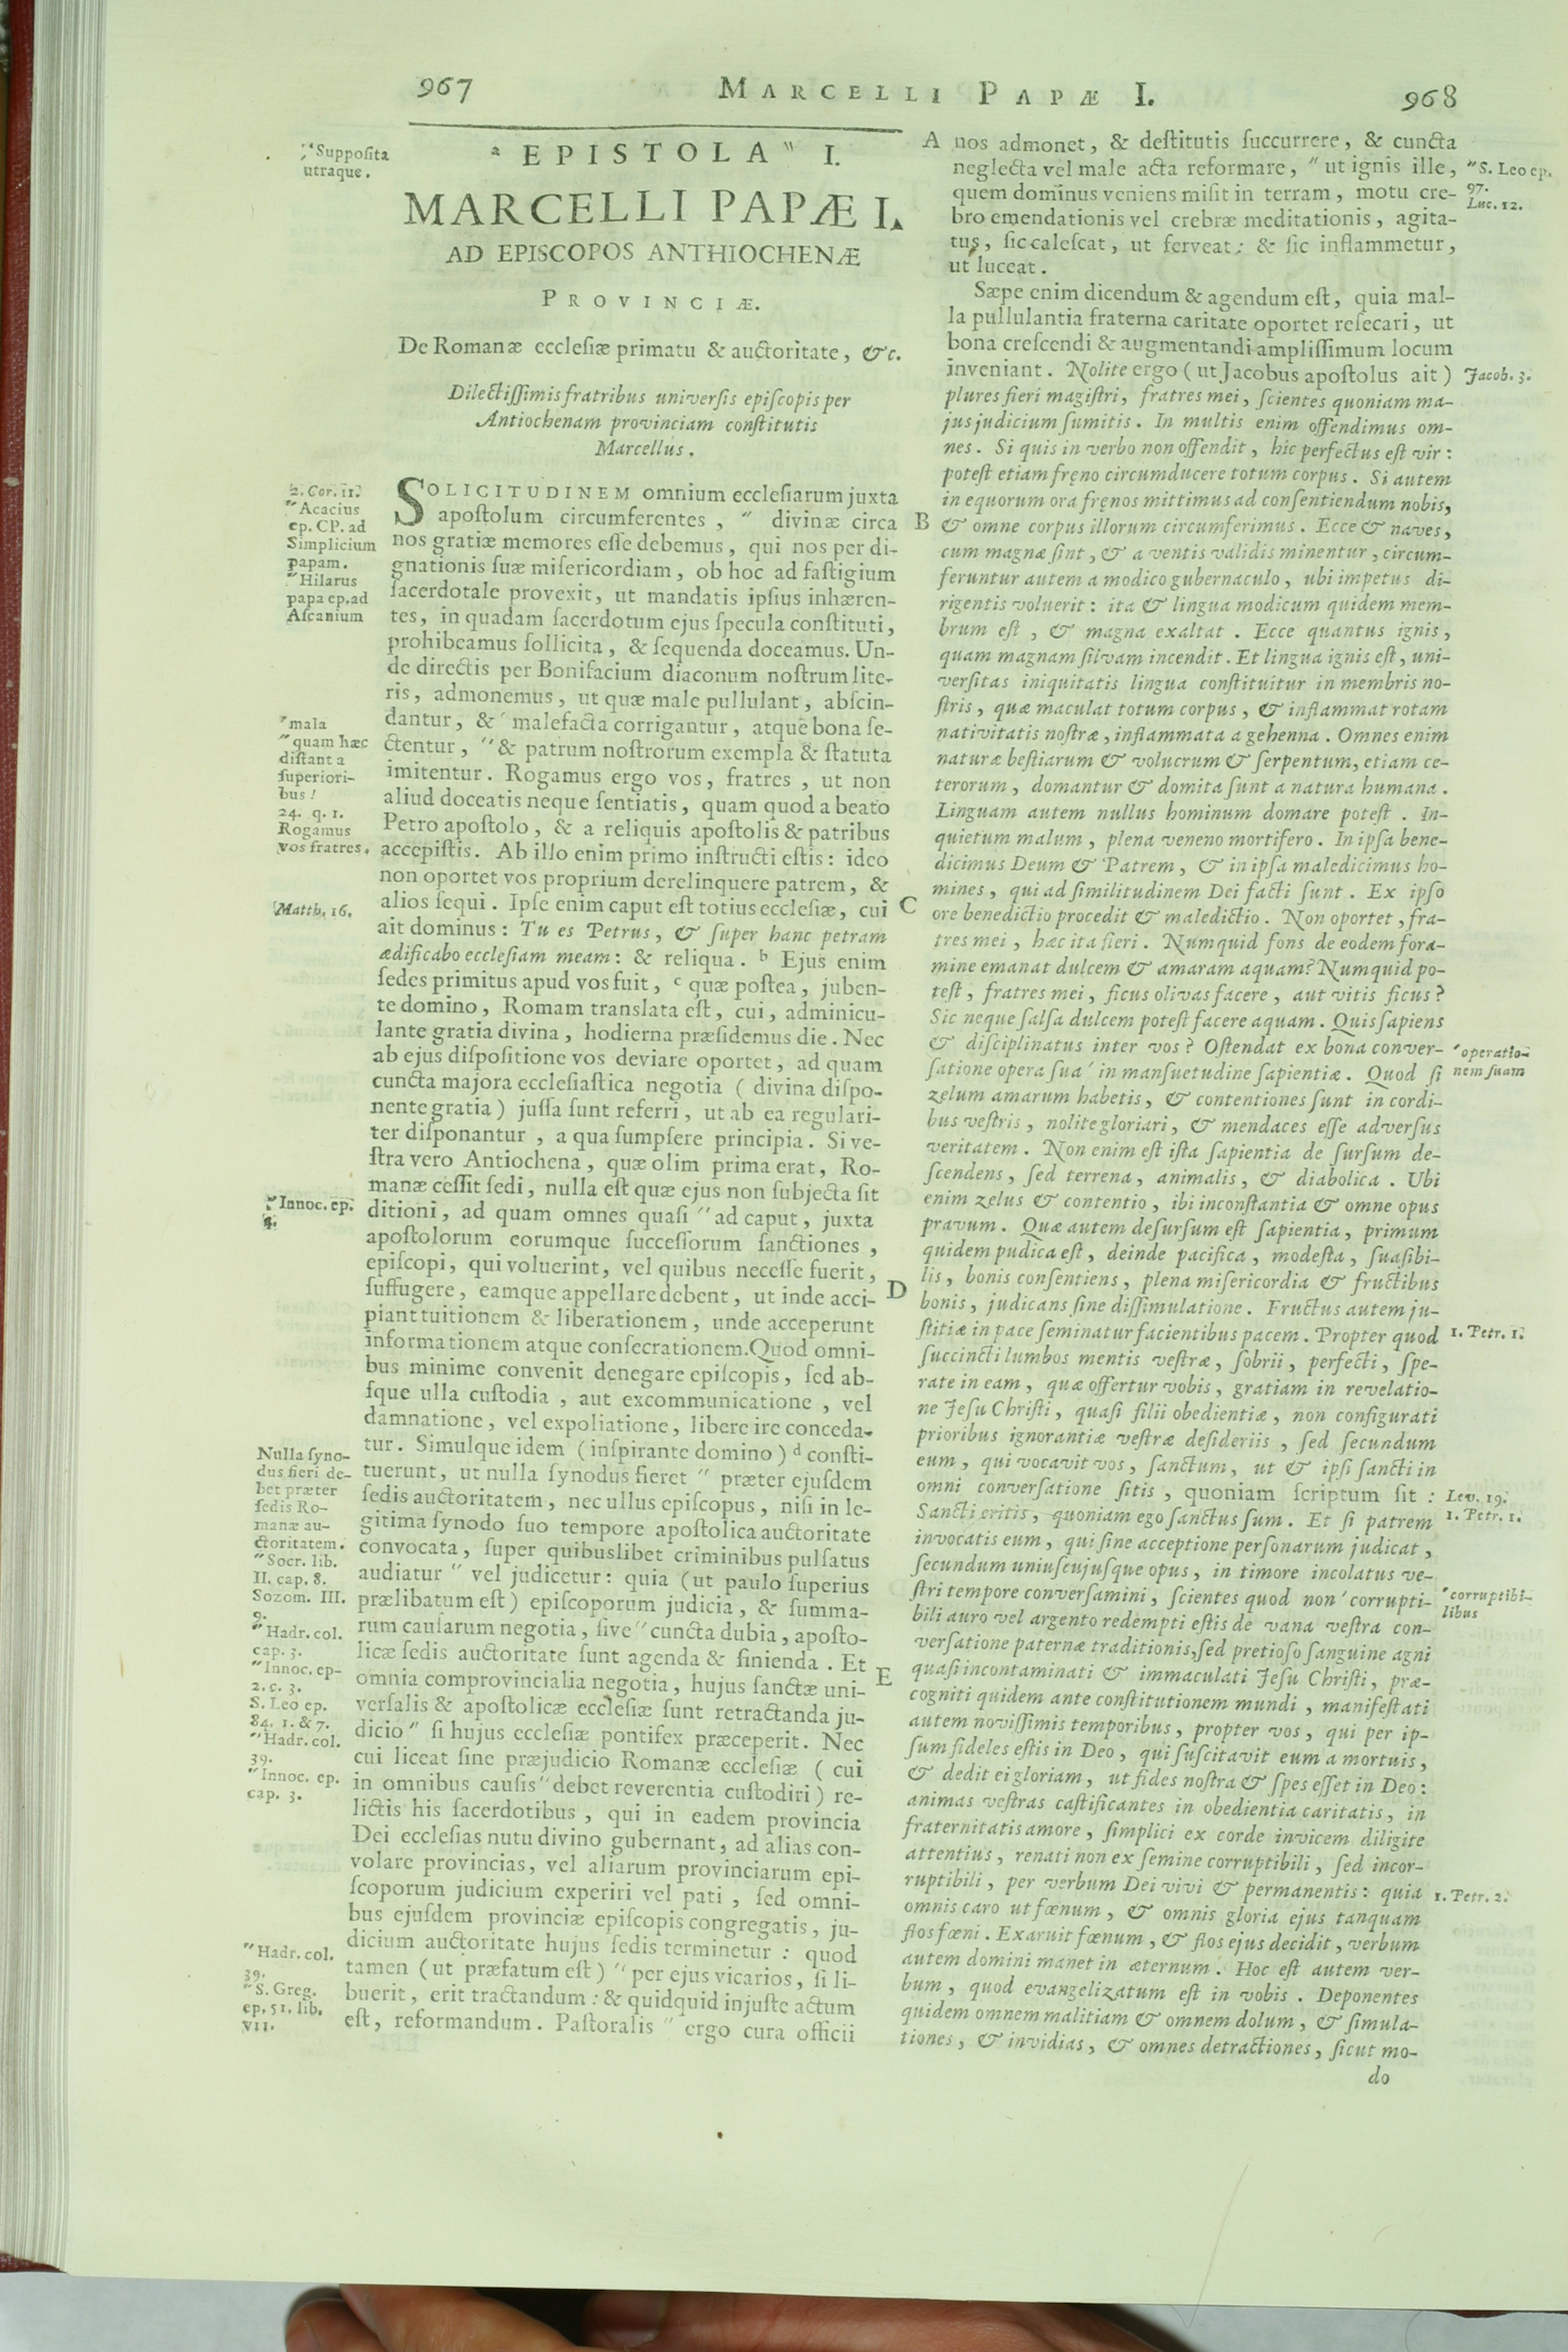 967
MARCELLI PAPÆ I.
968
"Supposita
utraque.
a EPISTOLA" I.
MARCELLI PAPÆ I.
AD EPISCOPOS ANTHIOCHENÆ
PROVINCIÆ.
De Romanæ ecclesiæ primatu & auctoritate, &c.
Dilectissimis fratribus universis episcopis per
Antiochenam provinciam constitutis
Marcellus.
2. Cor. 11.
"Acacius
ep. CP. ad
Simplicium
papam.
"Hilarus
papa ep. ad
Ascanium
SOLICITUDINEM omnium ecclesiarum juxta
apostolum circumferentes, " divinæ circa
nos gratiæ memores esse debemus, qui nos per di-
gnationis suæ misericordiam, ob hoc ad fastigium
sacerdotale provexit, ut mandatis ipsius inhæren-
tes, in quadam sacerdotum ejus specula constituti,
prohibeamus sollicita, & sequenda doceamus. Un-
de directis per Bonifacium diaconum nostrum lite-
ris, admonemus, ut quæ male pullulant, abscin-
dantur, & ' malefacta corrigantur, atque bona se-
ctentur, "& patrum nostrorum exempla & statuta
imitentur. Rogamus ergo vos, fratres, ut non
aliud doceatis neque sentiatis, quam quod a beato
Petro apostolo, & a reliquis apostolis & patribus
accepistis. Ab illo enim primo instructi estis: ideo
non oportet vos proprium derelinquere patrem, &
alios sequi. Ipse enim caput est totius ecclesiæ, cui
ait dominus: Tu es Petrus, & super hanc petram
ædificabo ecclesiam meam: & reliqua. b Ejus enim
sedes primitus apud vos fuit, c quæ postea, juben-
te domino, Romam translata est, cui, adminicu-
lante gratia divina, hodierna præsidemus die. Nec
ab ejus dispositione vos deviare oportet, ad quam
cuncta majora ecclesiastica negotia ( divina dispo-
nente gratia ) jussa sunt referri, ut ab ea regulari-
ter disponantur, a qua sumpsere principia. Si ve-
stra vero Antiochena, quæ olim prima erat, Ro-
manæ cessit sedi, nulla est quæ ejus non subjecta sit
ditioni, ad quam omnes quasi "ad caput, juxta
apostolorum eorumque successorum sanctiones,
episcopi, qui voluerint, vel quibus necesse fuerit,
suffugere, eamque appellare debent, ut inde acci-
piant tuitionem & liberationem, unde acceperunt
informationem atque consecrationem. Quod omni-
bus minime convenit denegare episcopis, sed ab-
sque ulla custodia, aut excommunicatione, vel
damnatione, vel expoliatione, libere ire conceda-
tur. Simulque idem ( inspirante domino ) d consti-
tuerunt, ut nulla synodus fieret " præter ejusdem
sedis auctoritatem, nec ullus episcopus, nisi in le-
gitima synodo suo tempore apostolica auctoritate
convocata, super quibuslibet criminibus pulsatus
audiatur " vel judicetur: quia (ut paulo superius
prælibatum est) episcoporum judicia, & summa-
rum causarum negotia, sive "cuncta dubia, aposto-
licæ sedis auctoritate sunt agenda & finienda. Et
omnia comprovincialia negotia, hujus sanctæ uni-
versalis & apostolicæ ecclesiæ sunt retractanda ju-
dicio" si hujus ecclesiæ pontifex præceperit. Nec
cui liceat sine præjudicio Romanæ ecclesiæ ( cui
in omnibus causis "debet reverentia custodiri ) re-
lictis his sacerdotibus, qui in eadem provincia
Dei ecclesias nutu divino gubernant, ad alias con-
volare provincias, vel aliarum provinciarum epi-
scoporum judicium experiri vel pati, sed omni-
bus ejusdem provinciæ episcopis congregatis, ju-
dicium auctoritate hujus sedis terminetur: quod
tamen (ut præfatum est) " per ejus vicarios, si li-
buerit, erit tractandum: & quidquid injuste actum
est, reformandum. Pastoralis " ergo cura officii
'mala
"quam hæc
distant a
superiori-
bus!
24. q. 1.
Rogamus
vos fratres.
Matth. 16.
"Innoc. ep.
4.
Nulla syno-
dus fieri de-
bet præter
sedis Ro-
manæ au-
ctoritatem.
"Socr. lib.
II. cap. 8.
Sozom. III.
9.
"Hadr. col.
cap. 3.
"Innoc. ep-
2. c. 3.
S. Leo ep.
84. 1. & 7.
"Hadr. col.
39.
"Innoc. ep.
cap. 3.
"Hadr. col.
39.
"S. Greg.
ep. 51. lib.
VII.
A
B
C
D
E
nos admonet, & destitutis succurrere, & cuncta
neglecta vel male acta reformare, "ut ignis ille,
quem dominus veniens misit in terram, motu cre-
bro emendationis vel crebræ meditationis, agita-
tus, sic calescat, ut ferveat: & sic inflammetur,
ut luceat.
Sæpe enim dicendum & agendum est, quia mal-
la pullulantia fraterna caritate oportet resecari, ut
bona crescendi & augmentandi amplissimum locum
inveniant. Nolite ergo ( ut Jacobus apostolus ait )
plures fieri magistri, fratres mei, scientes quoniam ma-
jus judicium sumitis. In multis enim offendimus om-
nes. Si quis in verbo non offendit, hic perfectus est vir:
potest etiam freno circumducere totum corpus. Si autem
in equorum ora frenos mittimus ad consentiendum nobis,
& omne corpus illorum circumferimus. Ecce & naves,
cum magnæ sint, & a ventis validis minentur, circum-
feruntur autem a modico gubernaculo, ubi impetus di-
rigentis voluerit: ita & lingua modicum quidem mem-
brum est, & magna exaltat. Ecce quantus ignis,
quam magnam silvam incendit. Et lingua ignis est, uni-
versitas iniquitatis lingua constituitur in membris no-
stris, quæ maculat totum corpus, & inflammat rotam
nativitatis nostræ, inflammata a gehenna. Omnes enim
naturæ bestiarum & volucrum & serpentum, etiam ce-
terorum, domantur & domita sunt a natura humana.
Linguam autem nullus hominum domare potest. In-
quietum malum, plena veneno mortifero. In ipsa bene-
dicimus Deum & Patrem, & in ipsa maledicimus ho-
mines, qui ad similitudinem Dei facti sunt. Ex ipso
ore benedictio procedit & maledictio. Non oportet, fra-
tres mei, hæc ita fieri. Numquid fons de eodem fora-
mine emanat dulcem & amaram aquam? Numquid po-
test, fratres mei, ficus olivas facere, aut vitis ficus?
Sic neque salsa dulcem potest facere aquam. Quis sapiens
& disciplinatus inter vos? Ostendat ex bona conver-
satione opera sua ' in mansuetudine sapientiæ. Quod si
zelum amarum habetis, & contentiones sunt in cordi-
bus vestris, nolite gloriari, & mendaces esse adversus
veritatem. Non enim est ista sapientia de sursum de-
scendens, sed terrena, animalis, & diabolica. Ubi
enim zelus & contentio, ibi inconstantia & omne opus
pravum. Quæ autem desursum est sapientia, primum
quidem pudica est, deinde pacifica, modesta, suasibi-
lis, bonis consentiens, plena misericordia & fructibus
bonis, judicans sine dissimulatione. Fructus autem ju-
stitiæ in pace seminatur facientibus pacem. Propter quod
succincti lumbos mentis vestræ, sobrii, perfecti, spe-
rate in eam, quæ offertur vobis, gratiam in revelatio-
ne Jesu Christi, quasi filii obedientiæ, non configurati
prioribus ignorantiæ vestræ desideriis, sed secundum
eum, qui vocavit vos, sanctum, ut & ipsi sancti in
omni conversatione sitis, quoniam scriptum sit:
Sancti eritis, quoniam ego sanctus sum. Et si patrem
invocatis eum, qui sine acceptione personarum judicat,
secundum uniuscujusque opus, in timore incolatus ve-
stri tempore conversamini, scientes quod non ' corrupti-
bili auro vel argento redempti estis de vana vestra con-
versatione paternæ traditionis, sed pretioso sanguine agni
quasi incontaminati & immaculati Jesu Christi, præ-
cogniti quidem ante constitutionem mundi, manifestati
autem novissimis temporibus, propter vos, qui per ip-
sum fideles estis in Deo, qui suscitavit eum a mortuis,
& dedit ei gloriam, ut fides nostra & spes esset in Deo:
animas vestras castificantes in obedientia caritatis, in
fraternitatis amore, simplici ex corde invicem diligite
attentius, renati non ex semine corruptibili, sed incor-
ruptibili, per verbum Dei vivi & permanentis: quia
omnis caro ut fœnum, & omnis gloria ejus tanquam
flos fœni. Exaruit fœnum, & flos ejus decidit, verbum
autem domini manet in æternum. Hoc est autem ver-
bum, quod evangelizatum est in vobis. Deponentes
quidem omnem malitiam & omnem dolum, & simula-
tiones, & invidias, & omnes detractiones, sicut mo-
do
"S. Leo ep.
97.
Luc. 12.
Jacob. 3.
'operatio-
nem suam
1. Petr. 1.
Lev. 19.
1. Petr. 1.
'corruptibi-
libus
1. Petr. 2.